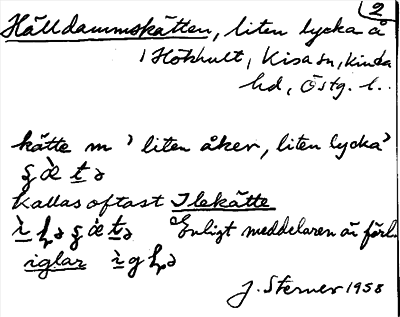 2
Hälldammskätten, liten lycka å
Hökhult, Kisa sn, Kinda
hd, Östg. l.
kätte m 'liten åker, liten lycka'
Kallas oftast Ilekätte
Enligt meddelaren är förl.
iglar
J. Sterner 1958